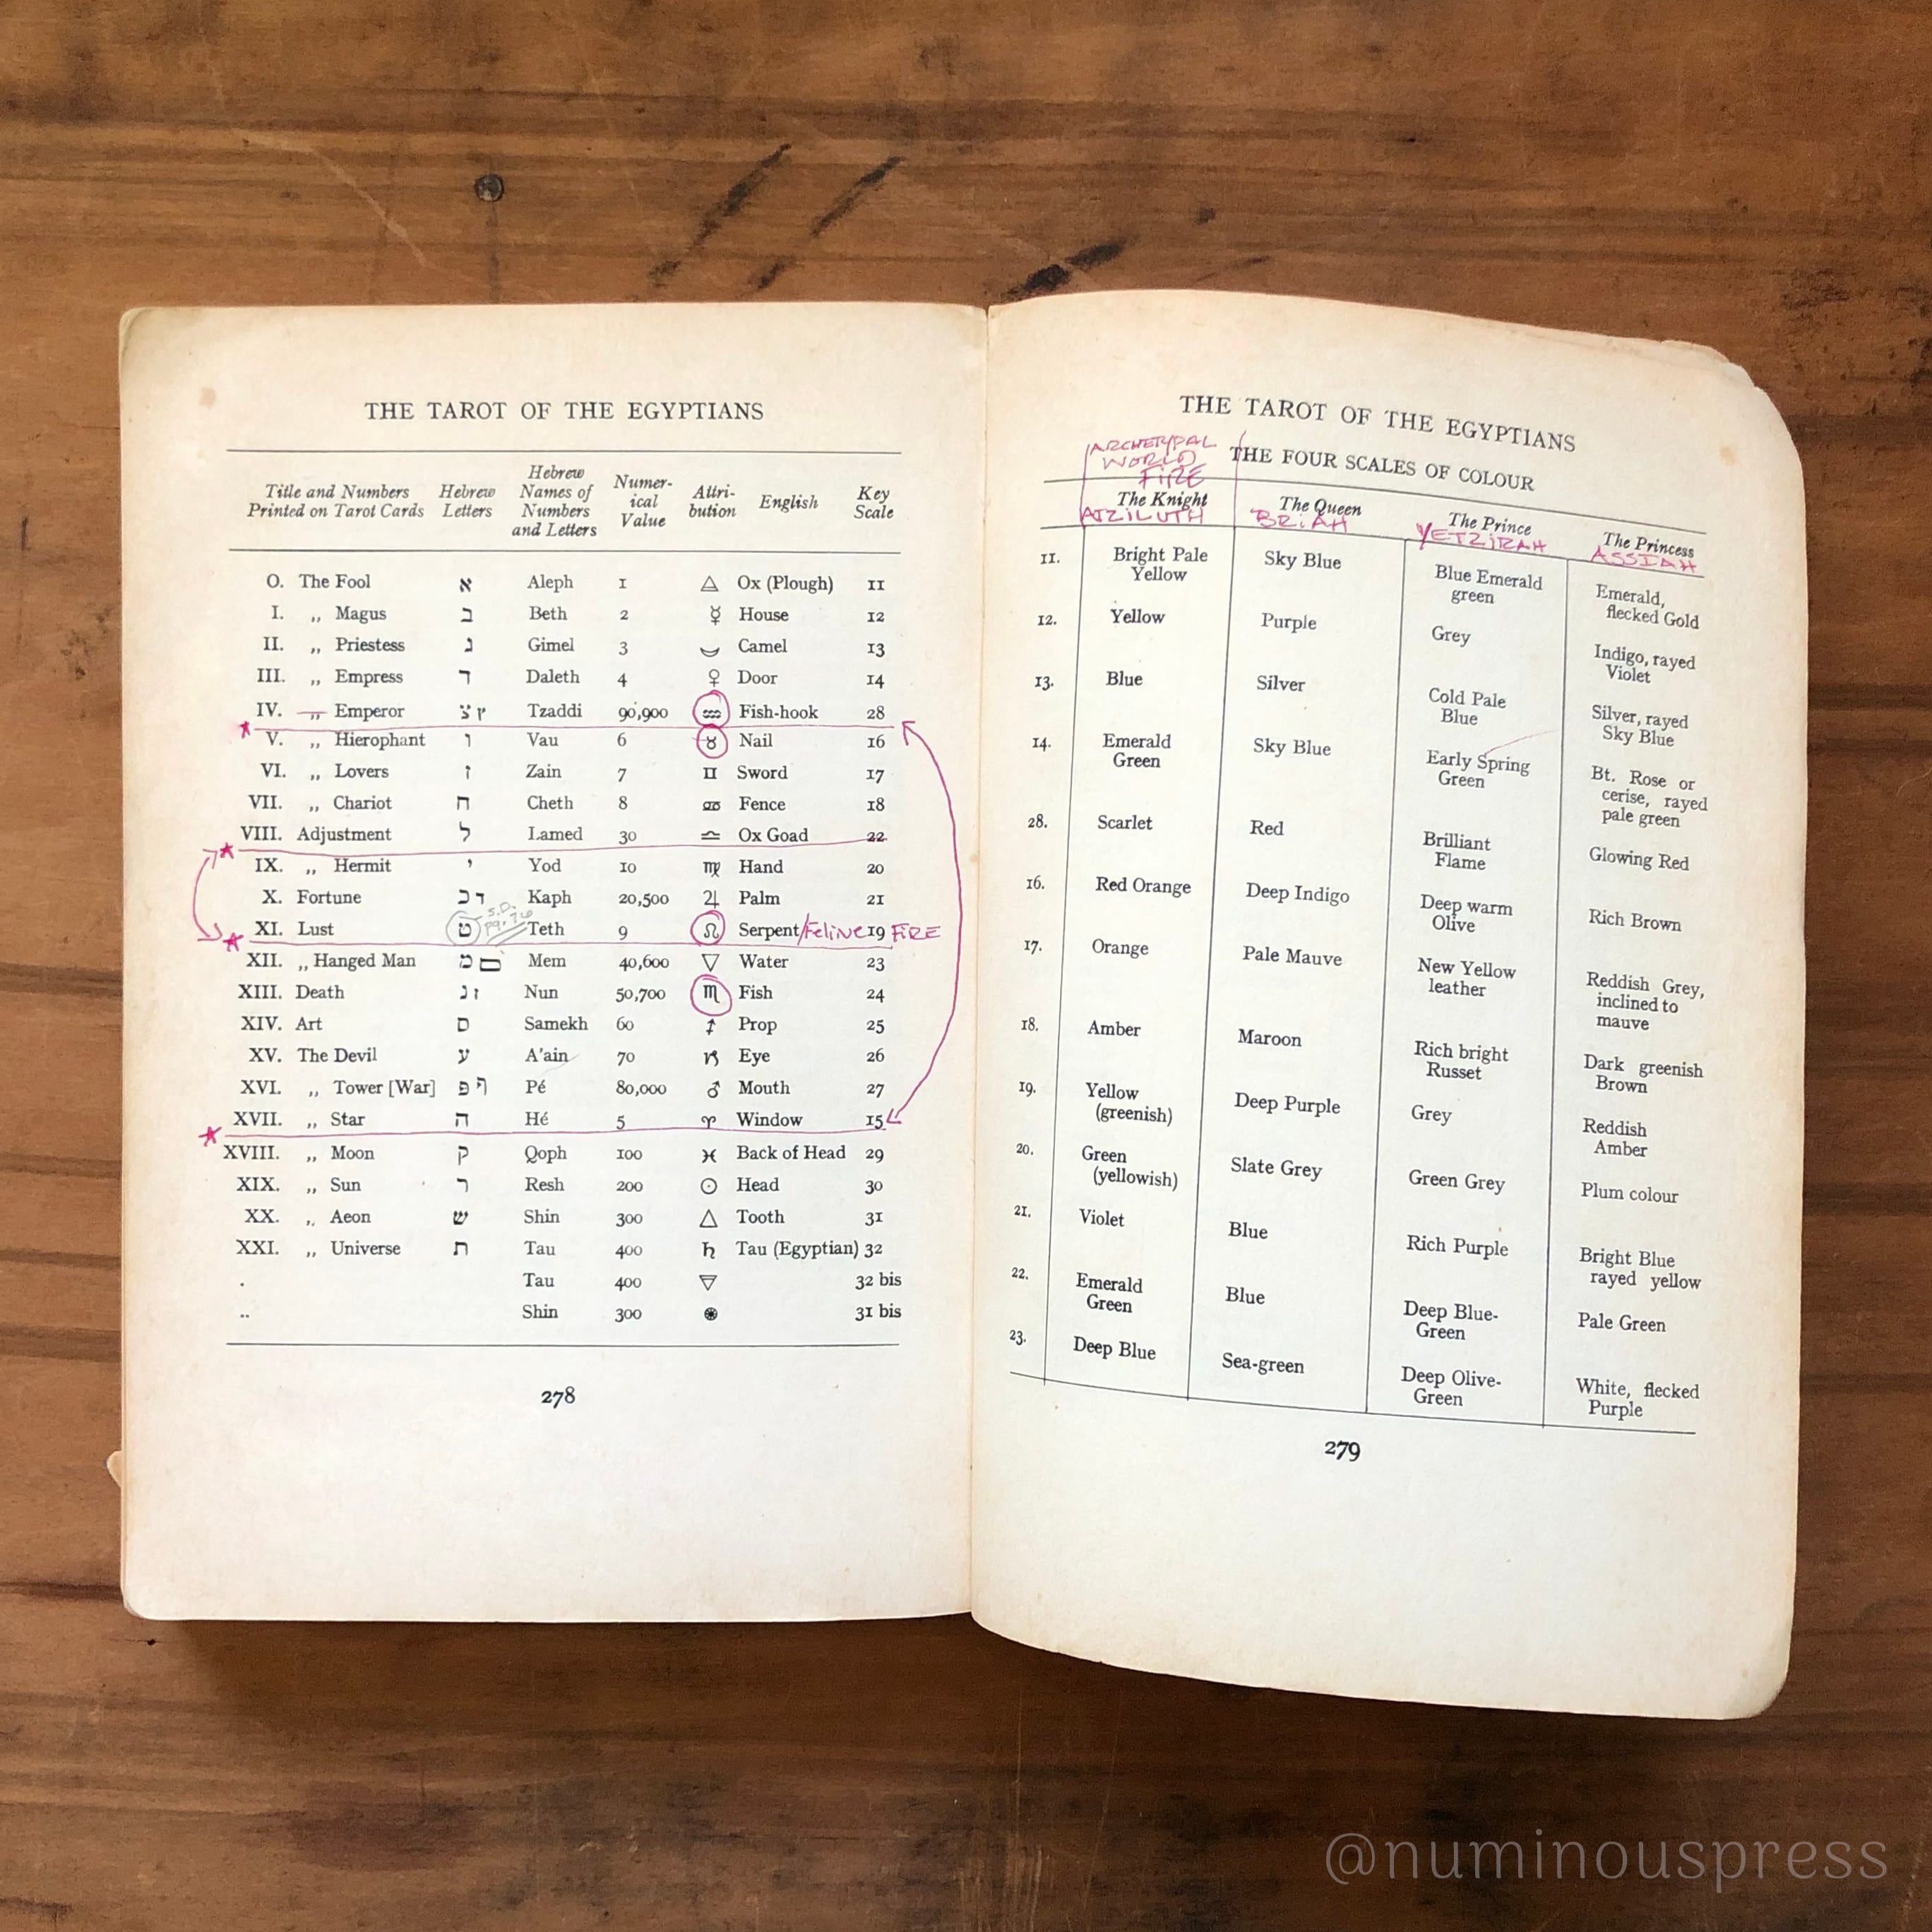 THE TAROT OF THE EGYPTIANS
Title and Numbers Printed on Tarot Cards Hebrew Letters Hebrew Names of Numbers and Letters Numer-ical Value Attri-bution English Key Scale
O. The Fool א Aleph 1 🜁 Ox (Plough) 11
I. ,, Magus ב Beth 2 ☿ House 12
II. ,, Priestess ג Gimel 3 Camel 13
III. ,, Empress ד Daleth 4 ♀ Door 14
IV. ,, Emperor צ ץ Tzaddi 90,900 ♒ Fish-hook 28
V. ,, Hierophant ו Vau 6 ♉ Nail 16
VI. ,, Lovers ז Zain 7 ♊ Sword 17
VII. ,, Chariot ח Cheth 8 ♋ Fence 18
VIII. Adjustment ל Lamed 30 ♎ Ox Goad 22
IX. ,, Hermit י Yod 10 ♍ Hand 20
X. Fortune כ ך Kaph 20,500 ♃ Palm 21
S.D. pg. 76
XI. Lust ט Teth 9 ♌ Serpent/Feline 19 FIRE
XII. ,, Hanged Man מ ם Mem 40,600 ▽ Water 23
XIII. Death נ ן Nun 50,700 ♏ Fish 24
XIV. Art ס Samekh 60 ♐ Prop 25
XV. The Devil ע A'ain 70 ♑ Eye 26
XVI. ,, Tower [War] פ ף Pé 80,000 ♂ Mouth 27
XVII. ,, Star ה Hé 5 ♈ Window 15
XVIII. ,, Moon ק Qoph 100 ♓ Back of Head 29
XIX. ,, Sun ר Resh 200 ☉ Head 30
XX. ,, Aeon ש Shin 300 △ Tooth 31
XXI. ,, Universe ת Tau 400 ♄ Tau (Egyptian) 32
. Tau 400 🜃 32 bis
.. Shin 300 31 bis
278
THE TAROT OF THE EGYPTIANS
THE FOUR SCALES OF COLOUR
ARCHETYPAL
WORLD
FIRE
The Knight The Queen The Prince The Princess
ATZILUTH BRIAH YETZIRAH ASSIAH
11. Bright Pale Yellow Sky Blue Blue Emerald green Emerald, flecked Gold
12. Yellow Purple Grey Indigo, rayed Violet
13. Blue Silver Cold Pale Blue Silver, rayed Sky Blue
14. Emerald Green Sky Blue Early Spring Green Bt. Rose or cerise, rayed pale green
28. Scarlet Red Brilliant Flame Glowing Red
16. Red Orange Deep Indigo Deep warm Olive Rich Brown
17. Orange Pale Mauve New Yellow leather Reddish Grey, inclined to mauve
18. Amber Maroon Rich bright Russet Dark greenish Brown
19. Yellow (greenish) Deep Purple Grey Reddish Amber
20. Green (yellowish) Slate Grey Green Grey Plum colour
21. Violet Blue Rich Purple Bright Blue rayed yellow
22. Emerald Green Blue Deep Blue-Green Pale Green
23. Deep Blue Sea-green Deep Olive-Green White, flecked Purple
279
@numinouspress